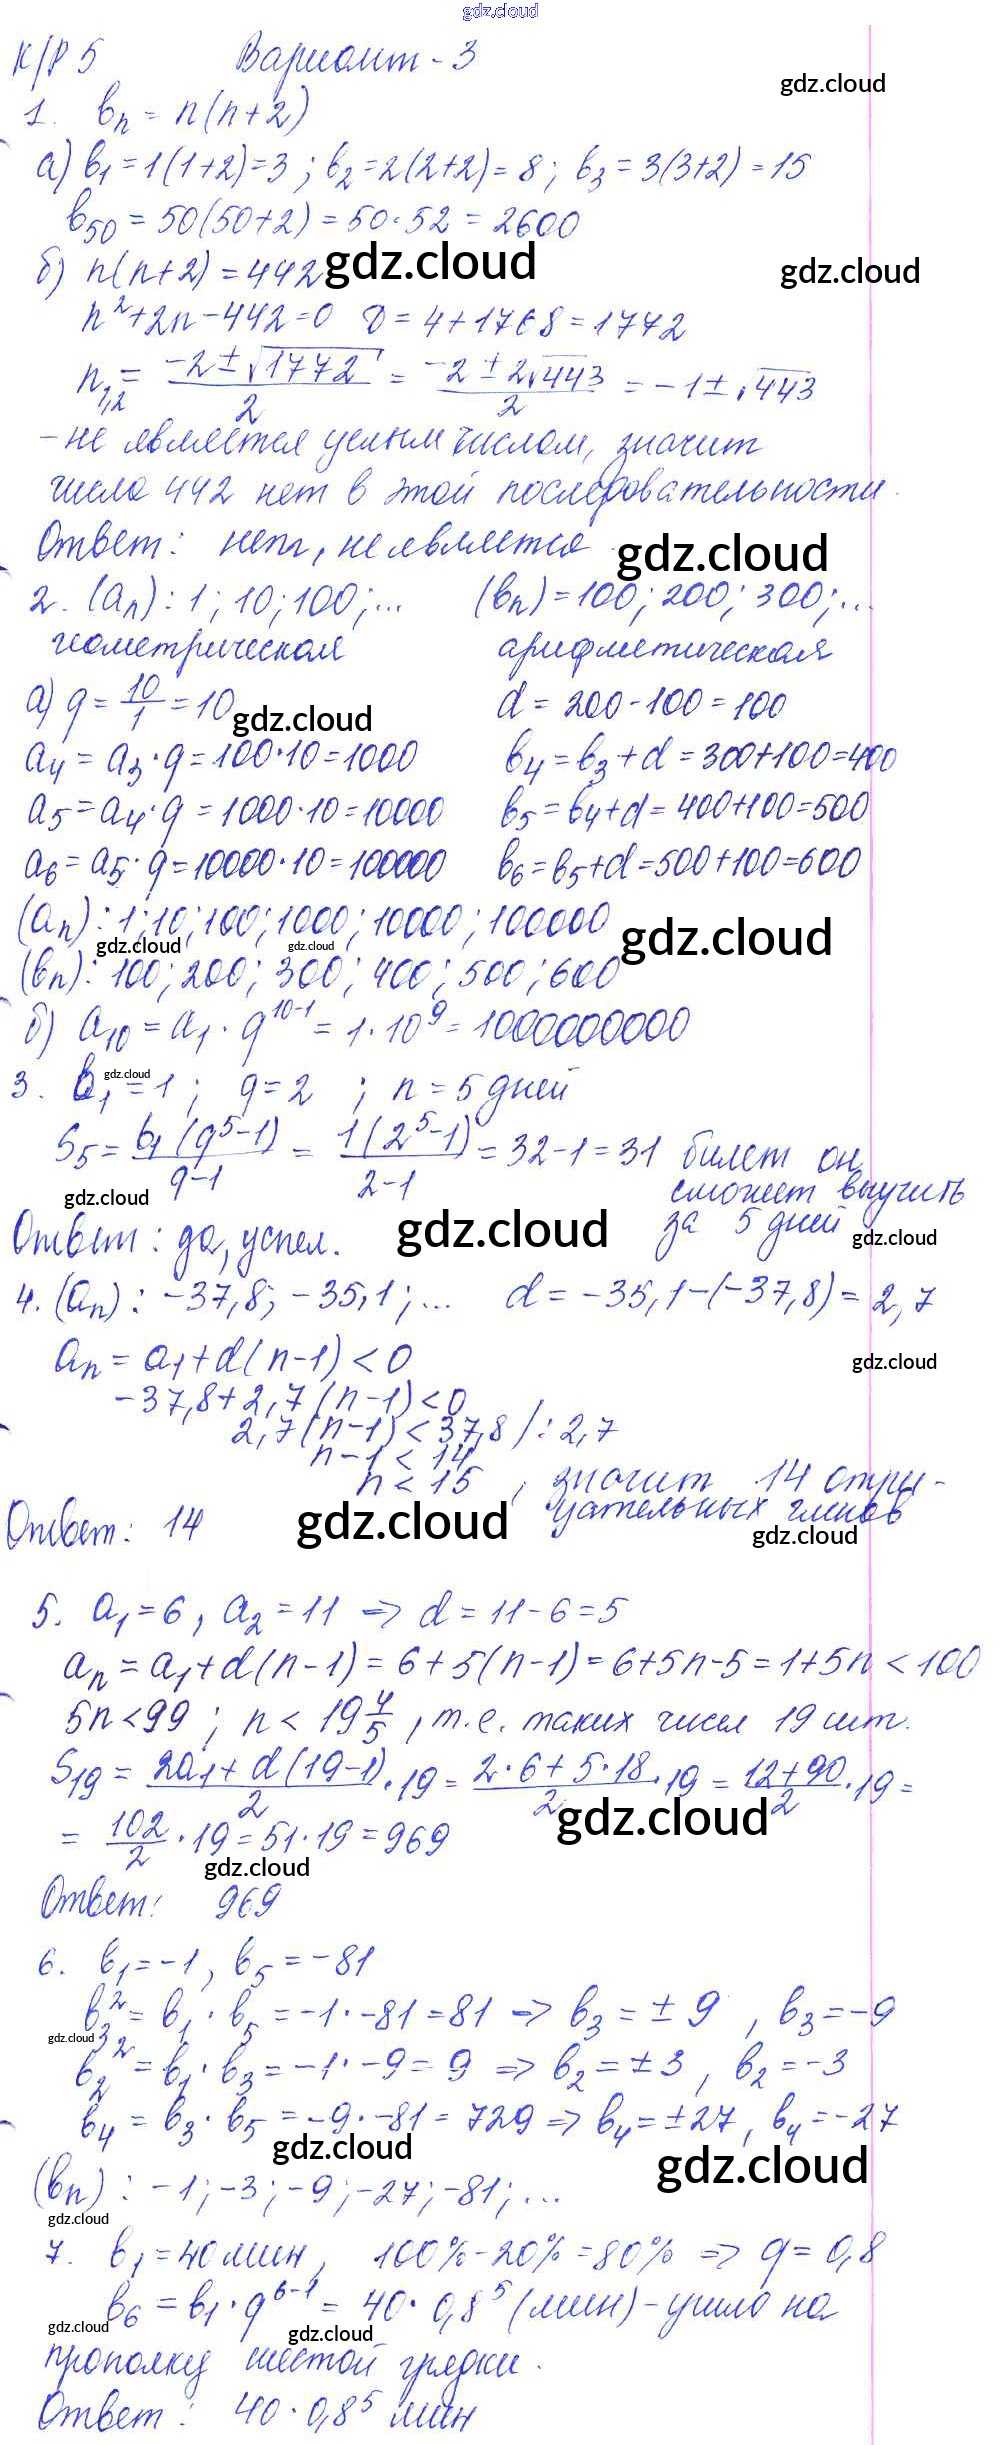 gdz.cloud
К/Р 5 Вариант - 3
gdz.cloud
1. bₙ = n(n+2)
а) b₁ = 1(1+2)=3 ; b₂ = 2(2+2) = 8 ; b₃ = 3(3+2) = 15
b₅₀ = 50(50+2) = 50·52 = 2600
б) n(n+2) = 442 gdz.cloud gdz.cloud
n²+2n-442=0 D = 4+1768 = 1772
n₁,₂ = (-2±√1772)/2 = (-2±2√443)/2 = -1±√443
- не является целым числом, значит
число 442 нет в этой последовательности.
Ответ: нет, не является gdz.cloud
2. (aₙ): 1; 10; 100; ... (bₙ) = 100; 200; 300; ...
геометрическая арифметическая
а) q = 10/1 = 10 gdz.cloud d = 200-100 = 100
a₄ = a₃·q = 100·10 = 1000 b₄ = b₃+d = 300+100=400
a₅ = a₄·q = 1000·10 = 10000 b₅ = b₄+d = 400+100=500
a₆ = a₅·q = 10000·10 = 100000 b₆ = b₅+d = 500+100=600
(aₙ): 1; 10; 100; 1000; 10000; 100000
gdz.cloud gdz.cloud gdz.cloud
(bₙ): 100; 200; 300; 400; 500; 600
б) a₁₀ = a₁·q¹⁰⁻¹ = 1·10⁹ = 1000000000
3. b₁ = 1 ; q = 2 ; n = 5 дней
gdz.cloud
S₅ = b₁(q⁵-1)/(q-1) = 1(2⁵-1)/(2-1) = 32-1 = 31 билет он
сможет выучить
за 5 дней
gdz.cloud gdz.cloud gdz.cloud
Ответ: да, успел.
4. (aₙ): -37,8; -35,1; ... d = -35,1-(-37,8) = 2,7
aₙ = a₁+d(n-1) < 0
gdz.cloud
-37,8+2,7(n-1)<0
2,7(n-1)<37,8 /:2,7
n-1 < 14
n < 15 , значит 14 отри-
цательных членов
Ответ: 14 gdz.cloud gdz.cloud
5. a₁=6, a₂=11 => d = 11-6=5
aₙ = a₁+d(n-1) = 6+5(n-1) = 6+5n-5 = 1+5n < 100
5n<99 ; n < 19 4/5, т.е. таких чисел 19 шт.
S₁₉ = (2a₁+d(19-1))/2·19 = (2·6+5·18)/2·19 = (12+90)/2·19 =
gdz.cloud
= 102/2·19 = 51·19 = 969
gdz.cloud
Ответ: 969
6. b₁=-1, b₅=-81
b₃² = b₁·b₅ = -1·-81=81 => b₃ = ±9 , b₃=-9
gdz.cloud
b₂² = b₁·b₃ = -1·-9 = 9 => b₂ = ±3 , b₂=-3
b₄ = b₃·b₅ = -9·-81 = 729 => b₄ = ±27, b₄=-27
gdz.cloud gdz.cloud
(bₙ): -1; -3; -9; -27; -81; ...
gdz.cloud
7. b₁=40 мин, 100%-20%=80% => q = 0,8
b₆ = b₁·q⁶⁻¹ = 40·0,8⁵ (мин) - ушло на
gdz.cloud gdz.cloud
прополку шестой грядки.
Ответ: 40·0,8⁵ мин